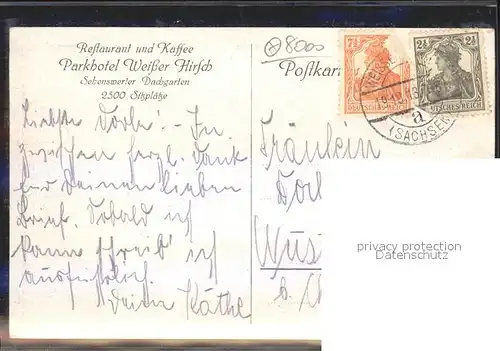 Restaurant und Kaffee
Parkhotel Weißer Hirsch
Sehenswerter Dachgarten
2500 Sitzplätze
8000
Postkar
7½ 7½
DEUTSCHES REICH
2½ 2½
DEUTSCHES REICH
a
(SACHSEN
Liebste Dorle! – In
zwischen herzl. Dank
für Deinen lieben
Brief. Sobald ich
kann schreib' ich
ausführlich.
Deine Käthe
Fräulein
Wüs
b. Ch
privacy protection
Datenschutz